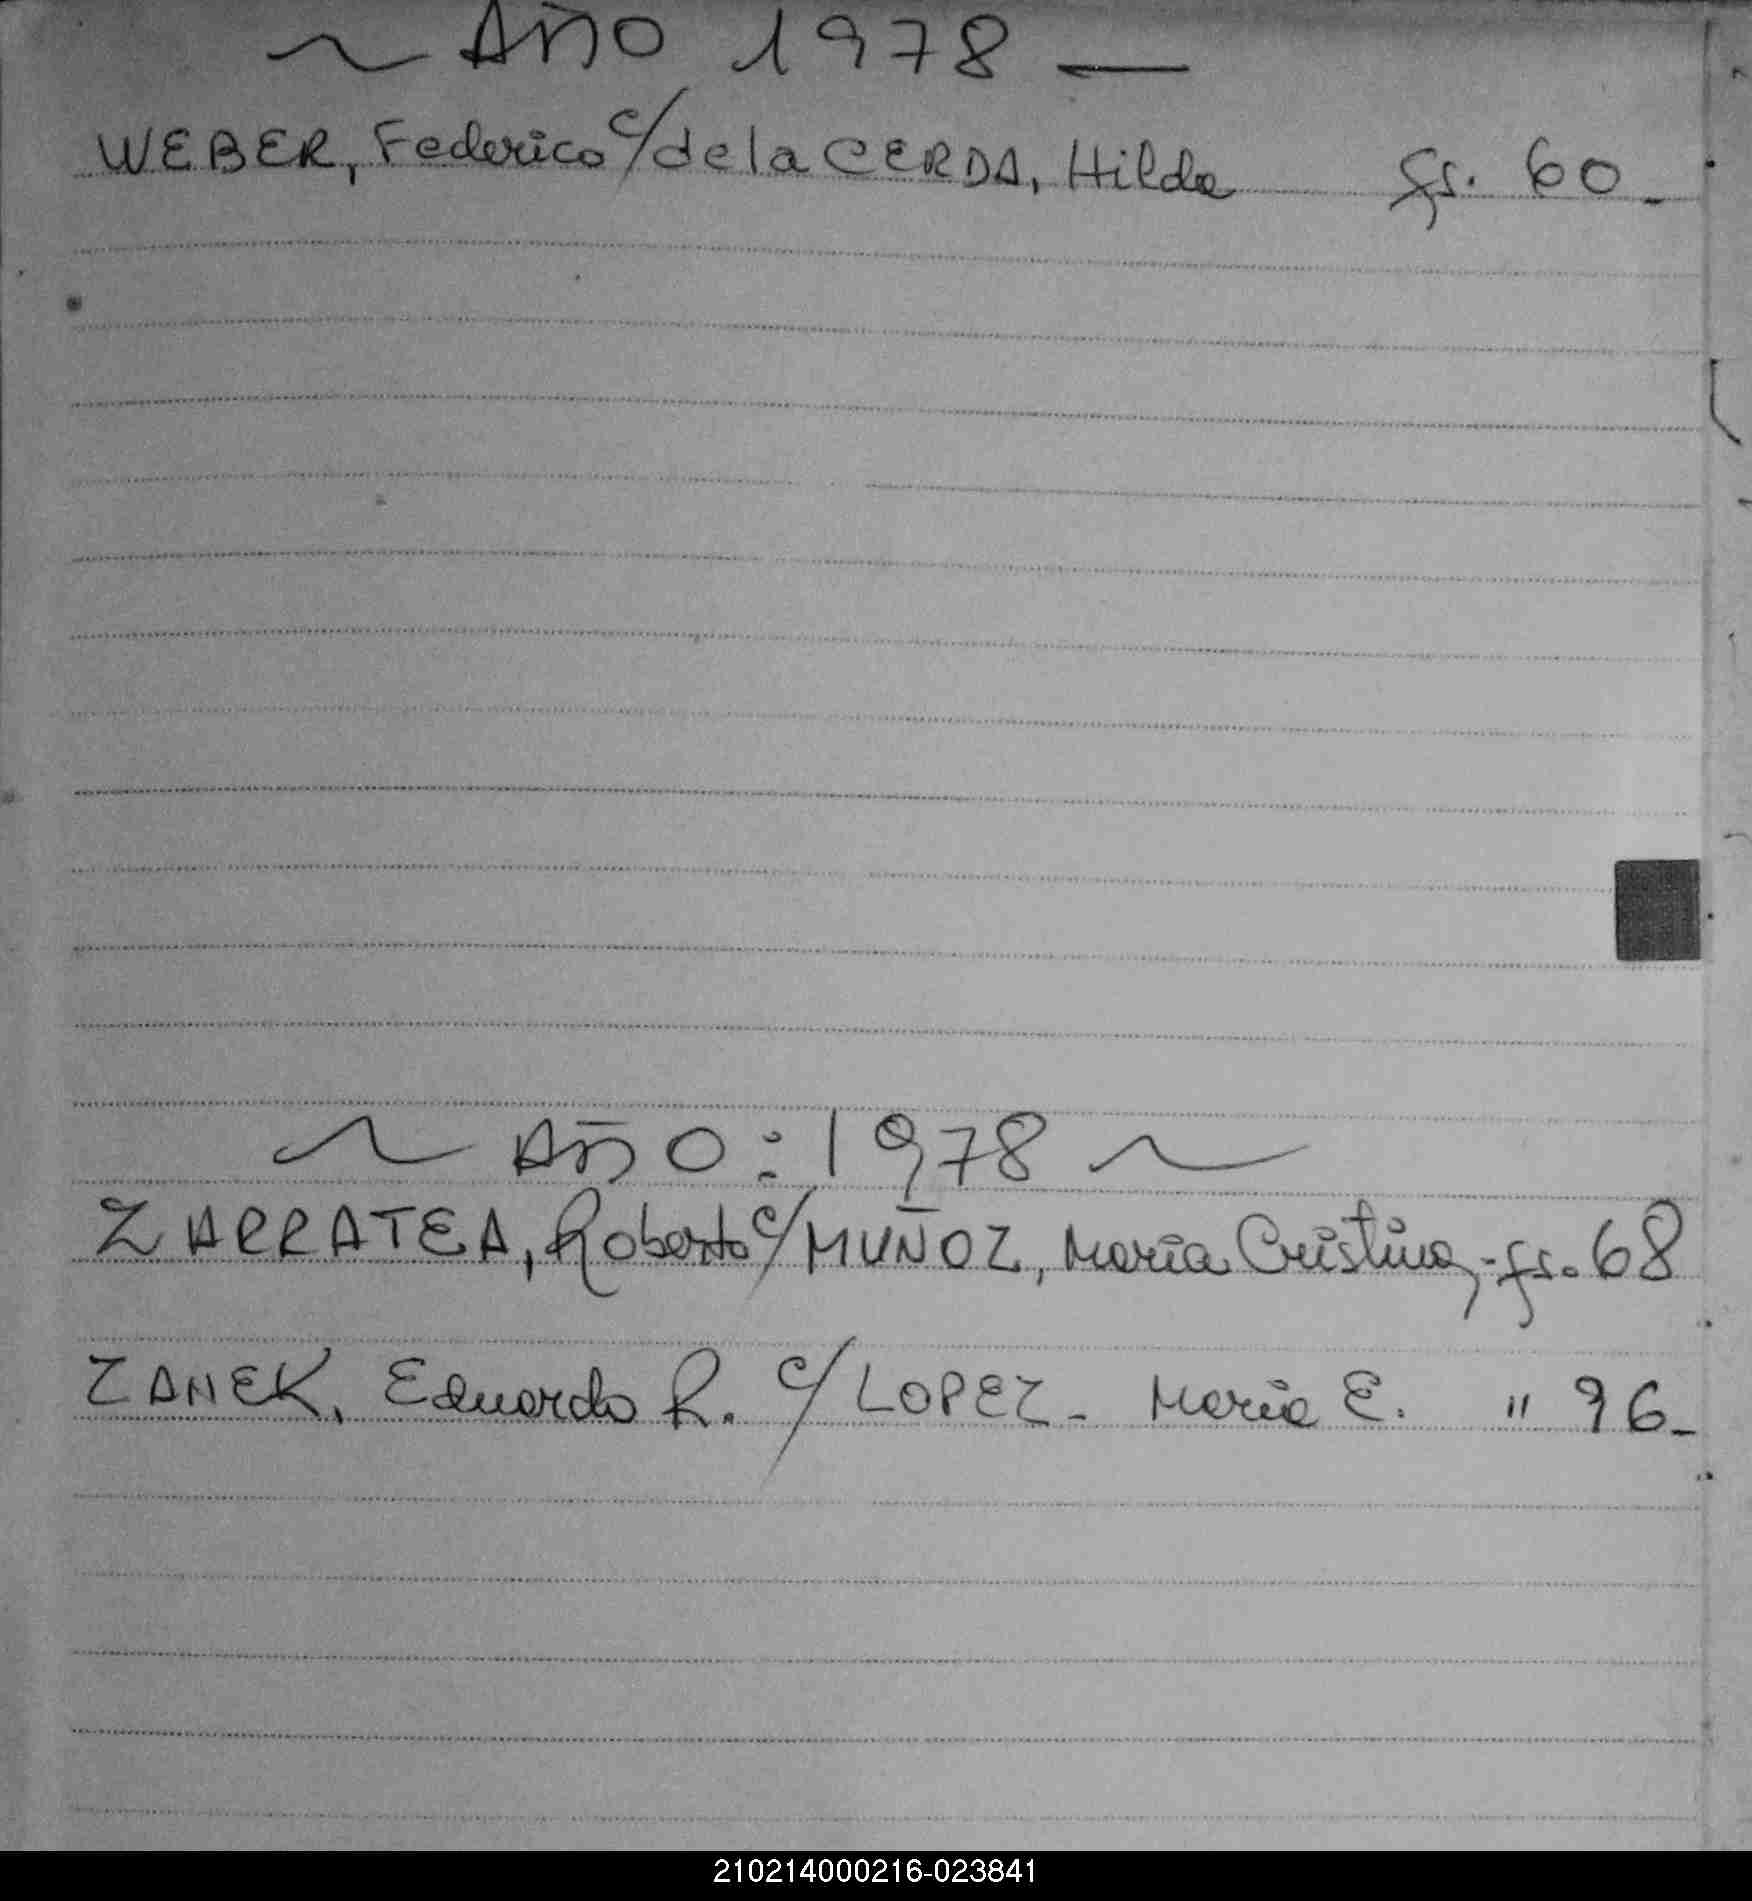 ~ AÑO 1978 —
WEBER, Federico c/ de la CERDA, Hilda fs. 60_
~ AÑO: 1978 ~
ZARRATEA, Roberto c/ MUÑOZ, María Cristina,-fs. 68
ZANEK, Eduardo R. c/ LOPEZ- María E. " 96_
210214000216-023841